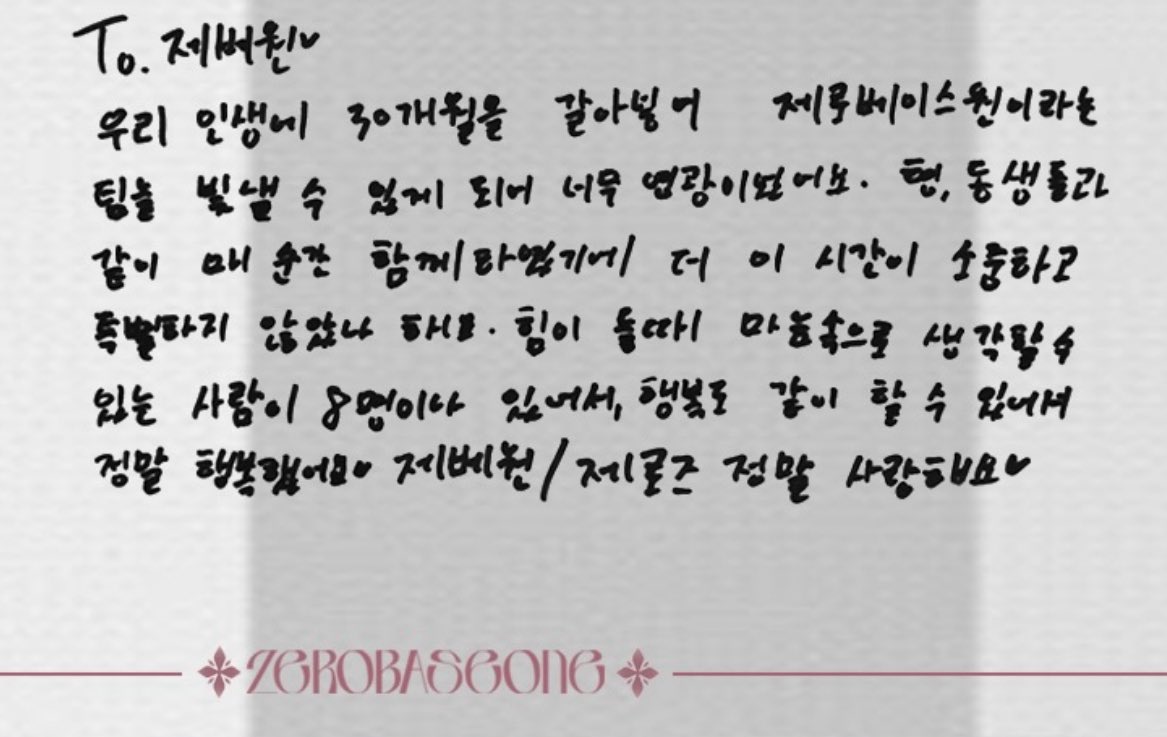 To. 제베원♥
우리 인생에 30개월을 갈아넣어 제로베이스원이라는
팀을 빛낼 수 있게 되어 너무 영광이였어요. 형, 동생들과
같이 매 순간 함께/라였기에/ 더 이 시간이 소중하고
특별하지 않았나 해요. 힘이 들때 마음속으로 생각할 수
있는 사람이 8명이나 있어서, 행복도 같이 할 수 있어서
정말 행복했어요♥ 제베원/제로즈 정말 사랑해요♥
ZEROBASEONE